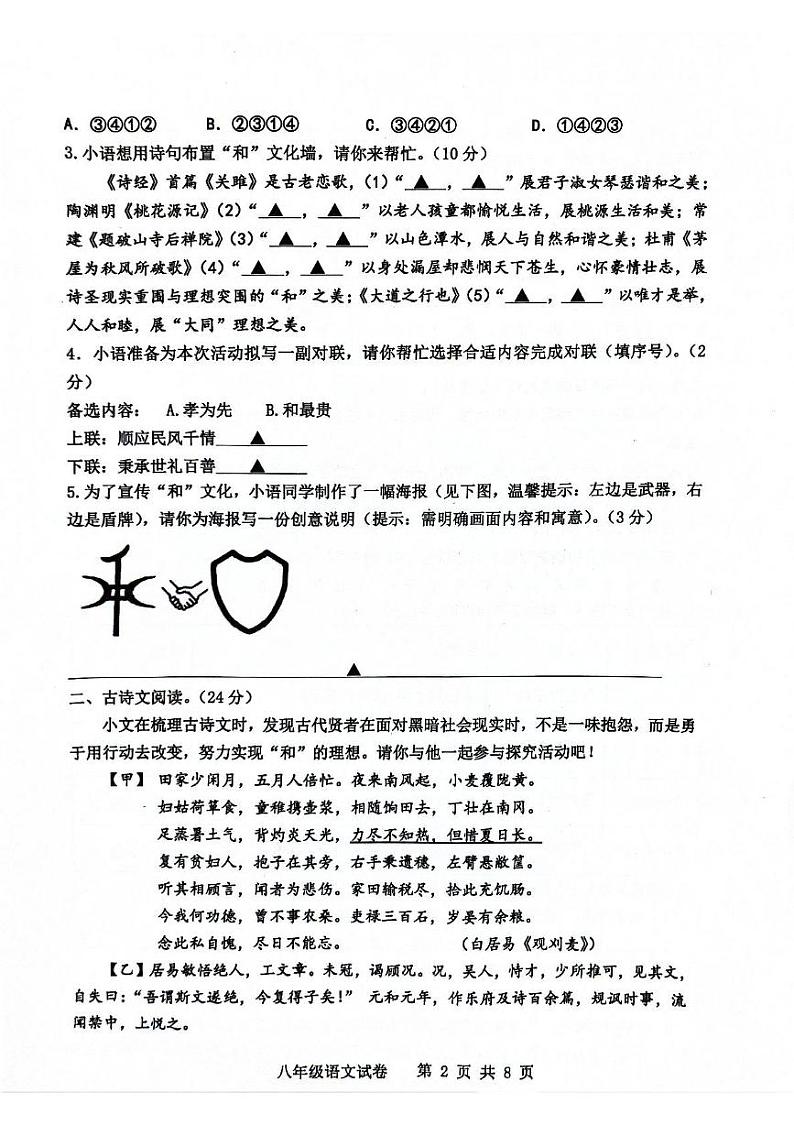 A. ③④①② B. ②③①④ C. ③④②① D. ①④②③
3.小语想用诗句布置“和”文化墙，请你来帮忙。（10 分）
《诗经》首篇《关雎》是古老恋歌，（1）“ ▲ ， ▲ ”展君子淑女琴瑟谐和之美；
陶渊明《桃花源记》（2）“ ▲ ， ▲ ”以老人孩童都愉悦生活，展桃源生活和美；常
建《题破山寺后禅院》（3）“ ▲ ， ▲ ”以山色潭水，展人与自然和谐之美；杜甫《茅
屋为秋风所破歌》（4）“ ▲ ， ▲ ”以身处漏屋却悲悯天下苍生，心怀豪情壮志，展
诗圣现实重围与理想突围的“和”之美；《大道之行也》（5）“ ▲ ， ▲ ”以唯才是举，
人人和睦，展“大同”理想之美。
4. 小语准备为本次活动拟写一副对联，请你帮忙选择合适内容完成对联（填序号）。（2
分）
备选内容： A.孝为先 B.和最贵
上联：顺应民风千情 ▲
下联：秉承世礼百善 ▲
5.为了宣传“和”文化，小语同学制作了一幅海报（见下图，温馨提示：左边是武器，右
边是盾牌），请你为海报写一份创意说明（提示：需明确画面内容和寓意）。（3 分）
▲
二、古诗文阅读。（24 分）
小文在梳理古诗文时，发现古代贤者在面对黑暗社会现实时，不是一味抱怨，而是勇
于用行动去改变，努力实现“和”的理想。请你与他一起参与探究活动吧！
【甲】 田家少闲月，五月人倍忙。夜来南风起，小麦覆陇黄。
妇姑荷箪食，童稚携壶浆，相随饷田去，丁壮在南冈。
足蒸暑土气，背灼炎天光，力尽不知热，但惜夏日长。
复有贫妇人，抱子在其旁，右手秉遗穗，左臂悬敝筐。
听其相顾言，闻者为悲伤。家田输税尽，拾此充饥肠。
今我何功德，曾不事农桑。吏禄三百石，岁晏有余粮。
念此私自愧，尽日不能忘。 （白居易《观刈麦》）
【乙】居易敏悟绝人，工文章。未冠，谒顾况。况，吴人，恃才，少所推可，见其文，
自失曰：“吾谓斯文遂绝，今复得子矣！” 元和元年，作乐府及诗百余篇，规讽时事，流
闻禁中，上悦之。
八年级语文试卷 第 2 页 共 8 页